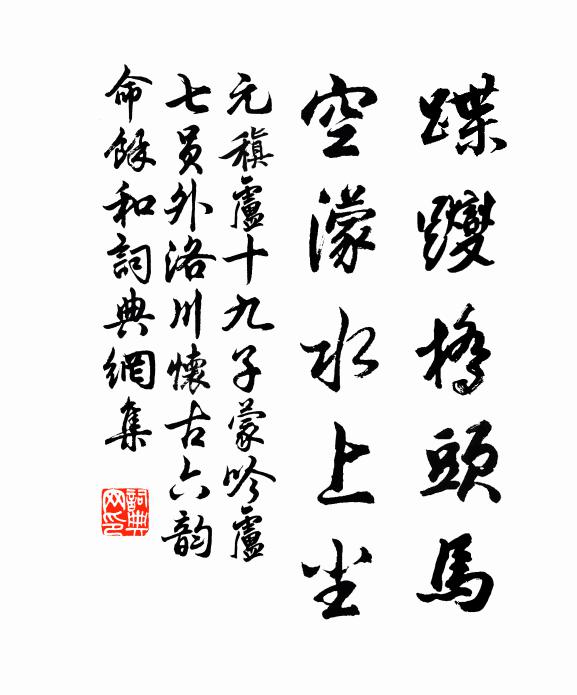 蹀躞橋頭馬
空濛水上尘
元稹盧十九子蒙吟盧
七員外洛川懷古六韵
命餘和詞典網集
詞典网印